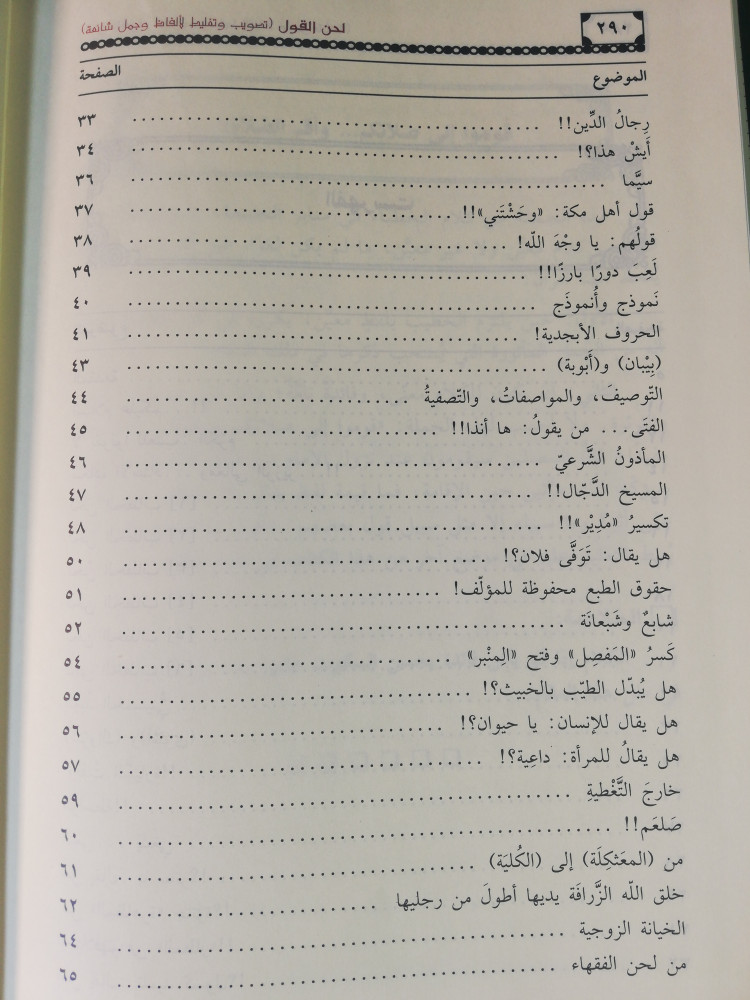 ٢٩٠ لحن القول (تصويب وتغليط لألفاظ وجمل شائعة)
الموضوع الصفحة
رِجالُ الدِّين!! ٣٣
أَيشْ هذا؟! ٣٤
سيَّما ٣٦
قول أهل مكة: «وحَشْتَني»!! ٣٧
قولُهم: يا وجْهَ اللّه! ٣٨
لَعِبَ دورًا بارزًا!! ٣٩
نَموذج وأُنموذَج ٤٠
الحروف الأبجدية! ٤١
(بِيْبان) و(أَبْوبة) ٤٣
التّوصيفَ، والمواصفاتُ، والتّصفيةُ ٤٤
الفتَى... من يقولُ: ها أنذا!! ٤٥
المأذونُ الشَّرعيّ ٤٦
المسيخ الدَّجّال!! ٤٧
تكسيرُ «مُدِيْر»!! ٤٨
هل يقال: تَوَفَّى فلان؟! ٥٠
حقوق الطبع محفوظة للمؤلّف! ٥١
شابعٌ وشَبْعانَة ٥٢
كَسرُ «المَفصِل» وفتح «الِمنْبر» ٥٤
هل يُبدّل الطيّب بالخبيث؟! ٥٥
هل يقال للإنسان: يا حيوان؟! ٥٦
هل يقالُ للمرأة: داعِية؟! ٥٧
خارجَ التَّغْطيةِ ٥٩
صَلعَم!! ٦٠
من (المعَثكِلَة) إلى (الكُليَة) ٦١
خلق اللّه الزَّرافَة يديها أطولَ من رجليها ٦٢
الخيانة الزوجية ٦٤
من لحن الفقهاء ٦٥